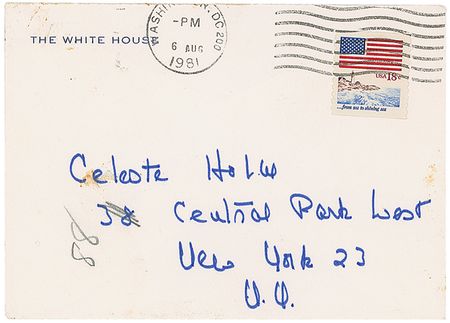 WASHINGTON, DC 200
-PM
6 AUG
1981
THE WHITE HOUSE
USA 18c
...from sea to shining sea
Celeste Holm
38 Central Park West
88
New York 23
N.Y.